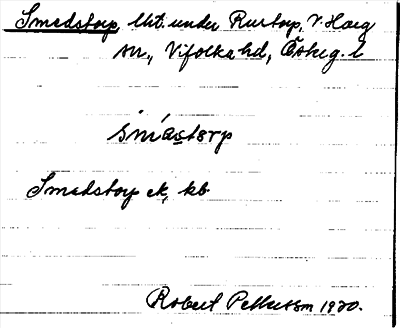 Smedstorp, lht. under Rustorp, V. Harg
sn., Vifolka hd, Östeg. l
smástorp
Smedstorp ek, kb
Robert Pettersson 1920.